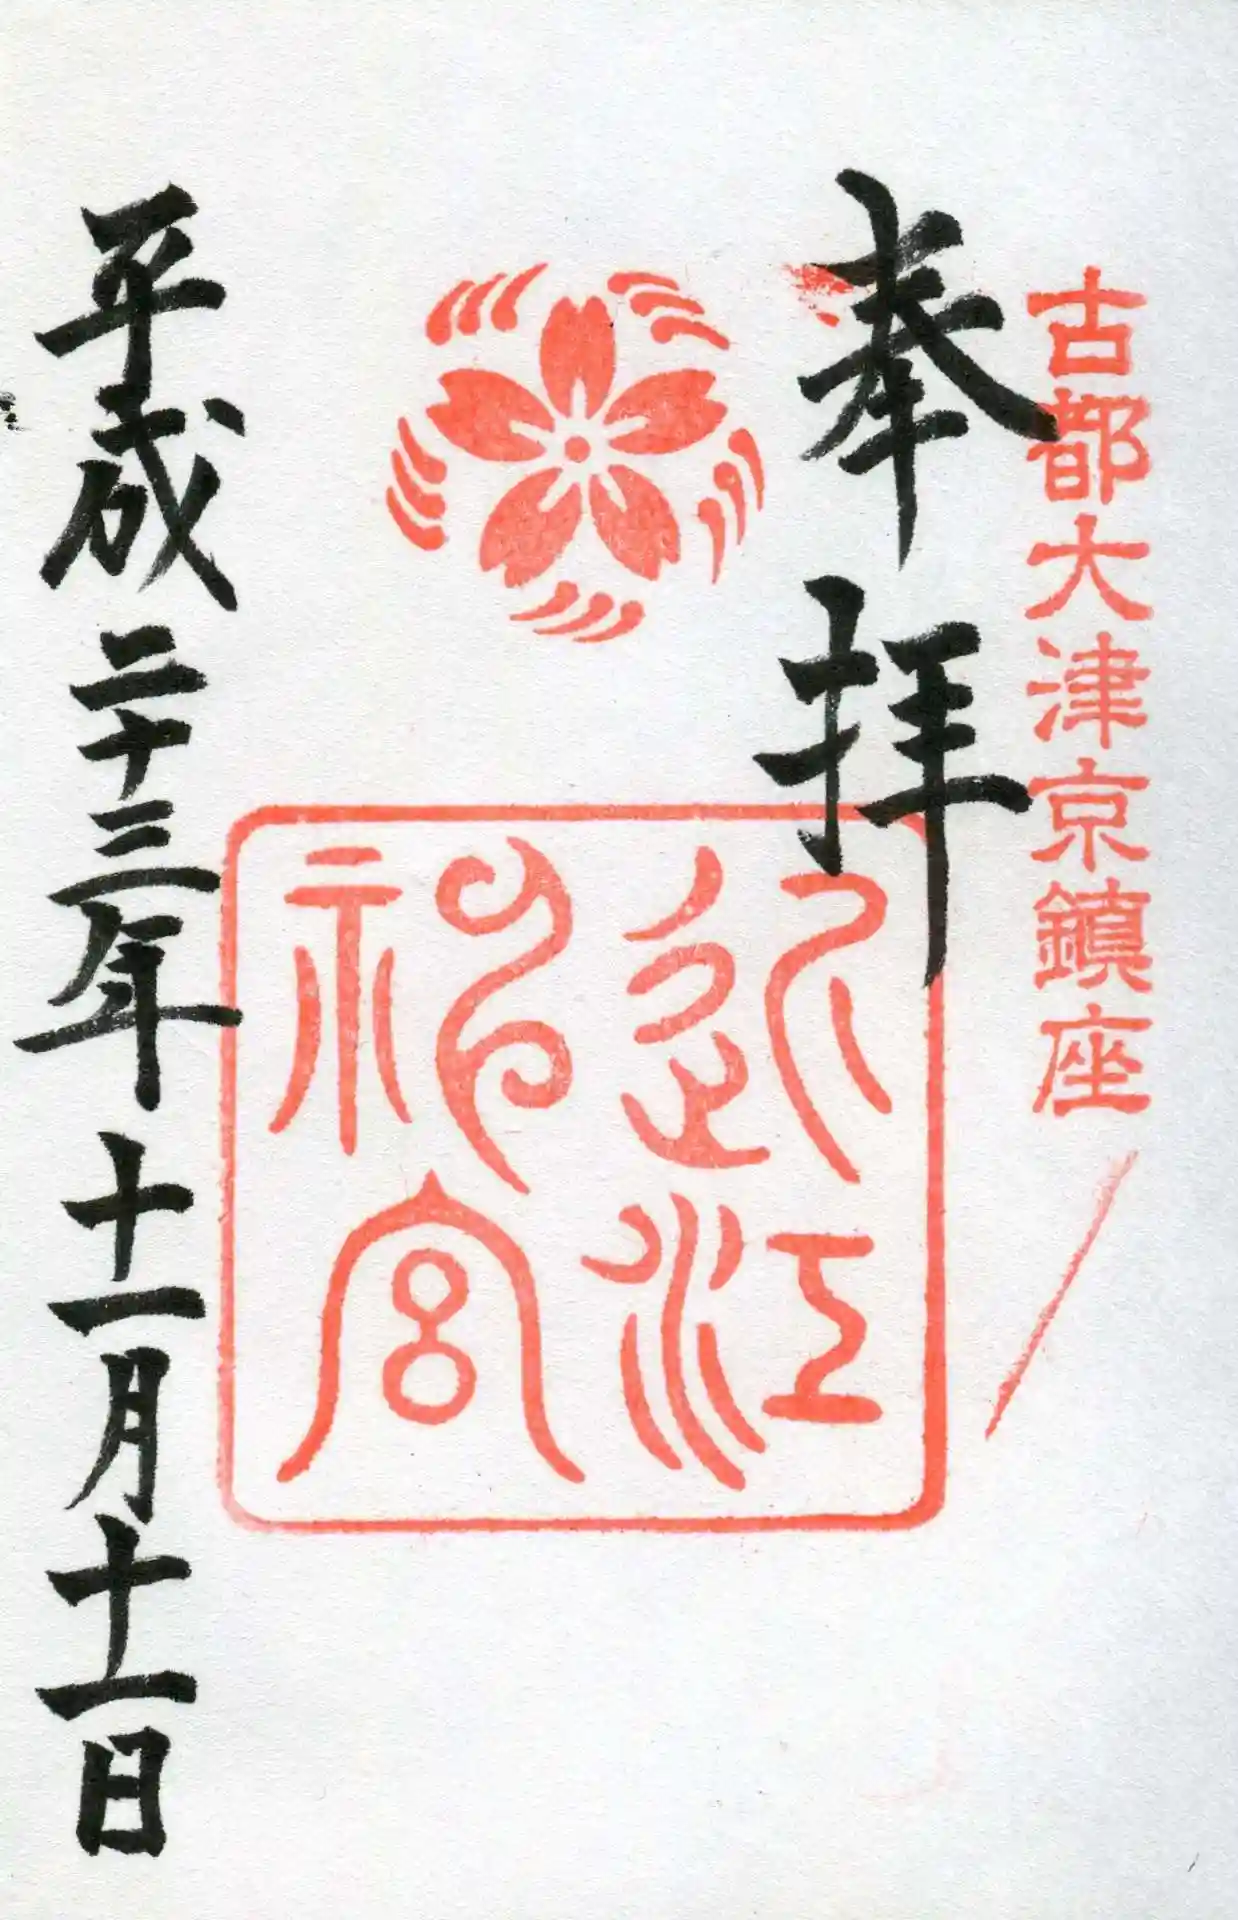 古都大津京鎮座
奉拝
近江
神宮
平成二十三年十一月十一日